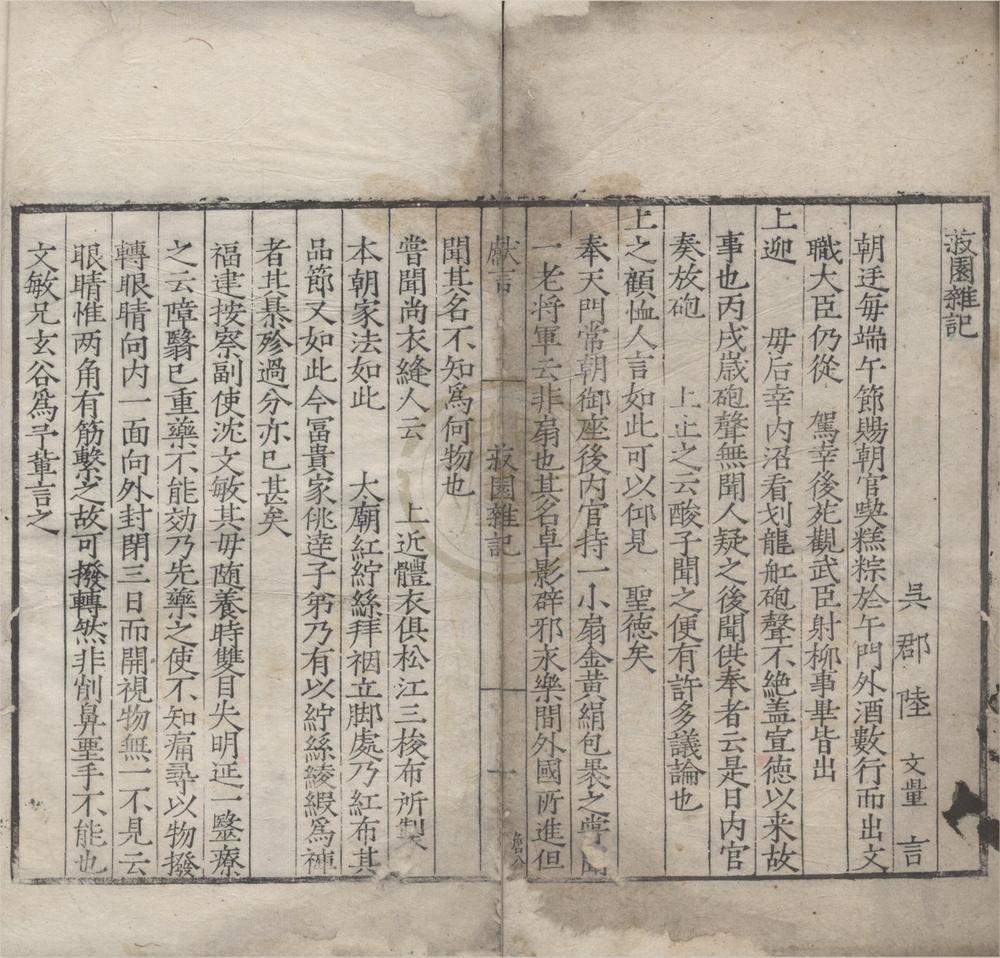 菽園雜記
吳郡陸文量言
朝廷每端午節賜朝官喫糕粽於午門外酒數行而出文
職大臣仍從 駕幸後苑觀武臣射柳事畢皆出
上迎 母后幸內沼看划龍舡砲聲不絕盖宣德以来故
事也丙戌歲砲聲無聞人疑之後聞供奉者云是日內官
奏放砲 上止之云酸子聞之便有許多議論也
上之顧恤人言如此可以仰見 聖德矣
奉天門常朝御座後內官持一小扇金黃絹包裹之嘗聞
一老将軍云非扇也其名卓影辟邪永樂間外國所進但
獻言 菽園雜記 十
聞其名不知為何物也
嘗聞尚衣縫人云 上近體衣俱松江三梭布所製
本朝家法如此 大廟紅紵絲拜裀立脚處乃紅布其
品節又如此今富貴家佻達子弟乃有以紵絲綾緞為褲
者其暴殄過分亦已甚矣
福建按察副使沈文敏其母随養時雙目失明延一醫療
之云障翳已重藥不能効乃先藥之使不知痛尋以物撥
轉眼睛向内一面向外封閉三日而開視物無一不見云
眼睛惟两角有筋繫之故可撥轉然非削鼻堊手不能也
文敏兄玄谷為予輩言之